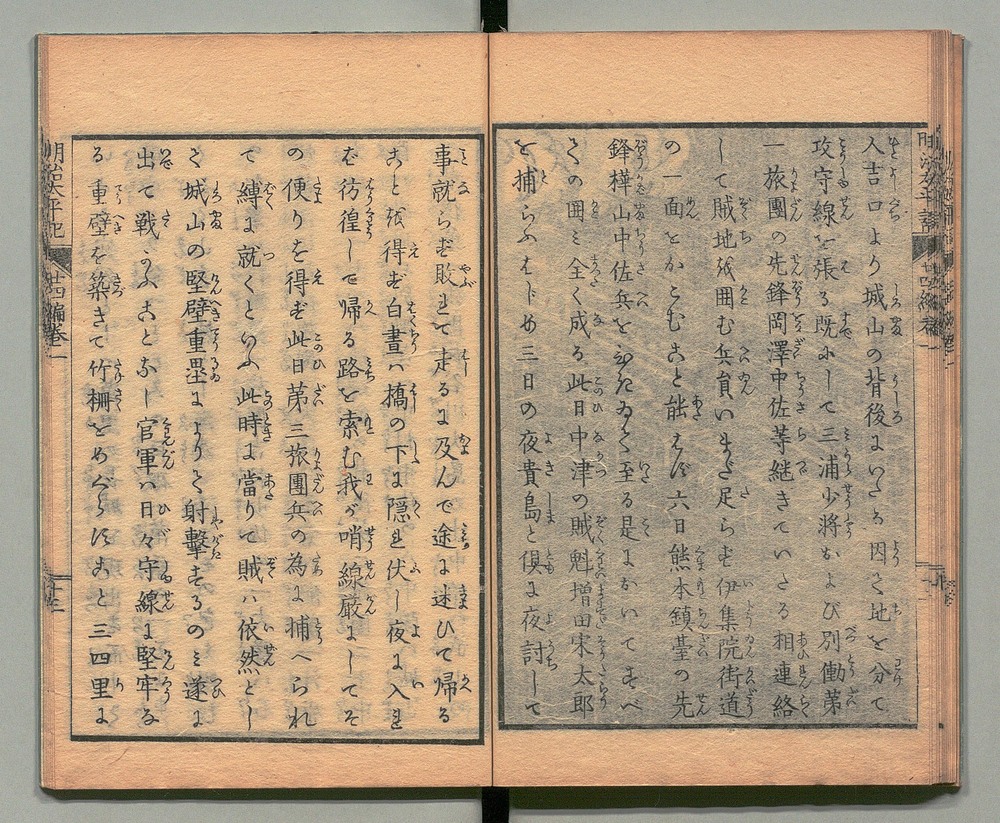 人吉口より城山の背後にいたる因て地を分て
攻守線を張る既にして三浦少将および別働第
一旅團の先鋒岡澤中佐等継きていたる相連絡
して賊地を囲む兵員いまだ足らず伊集院街道
の一面をかこむこと能はず六日熊本鎮臺の先
鋒樺山中佐兵をひきゐて至る是においてすべ
ての囲ミ全く成る此日中津の賊魁増田宋太郎
を捕らふはじめ三日の夜貴島と倶に夜討して
事就らず敗れて走るに及んで途に迷ひて帰る
ことを得ず白晝ハ橋の下に隠れ伏し夜に入れ
ば彷徨して帰る路を索む我が哨線厳にしてそ
の便りを得ず此日第三旅團兵の為に捕へられ
て縛に就くといふ此時に當りて賊ハ依然とし
て城山の堅壁重塁によりて射撃するのミ遂に
出て戦ふことなし官軍ハ日々守線を堅牢な
る重壁を築きて竹柵をめぐらすこと三四里に
明治太平記 廿四編巻一
十三